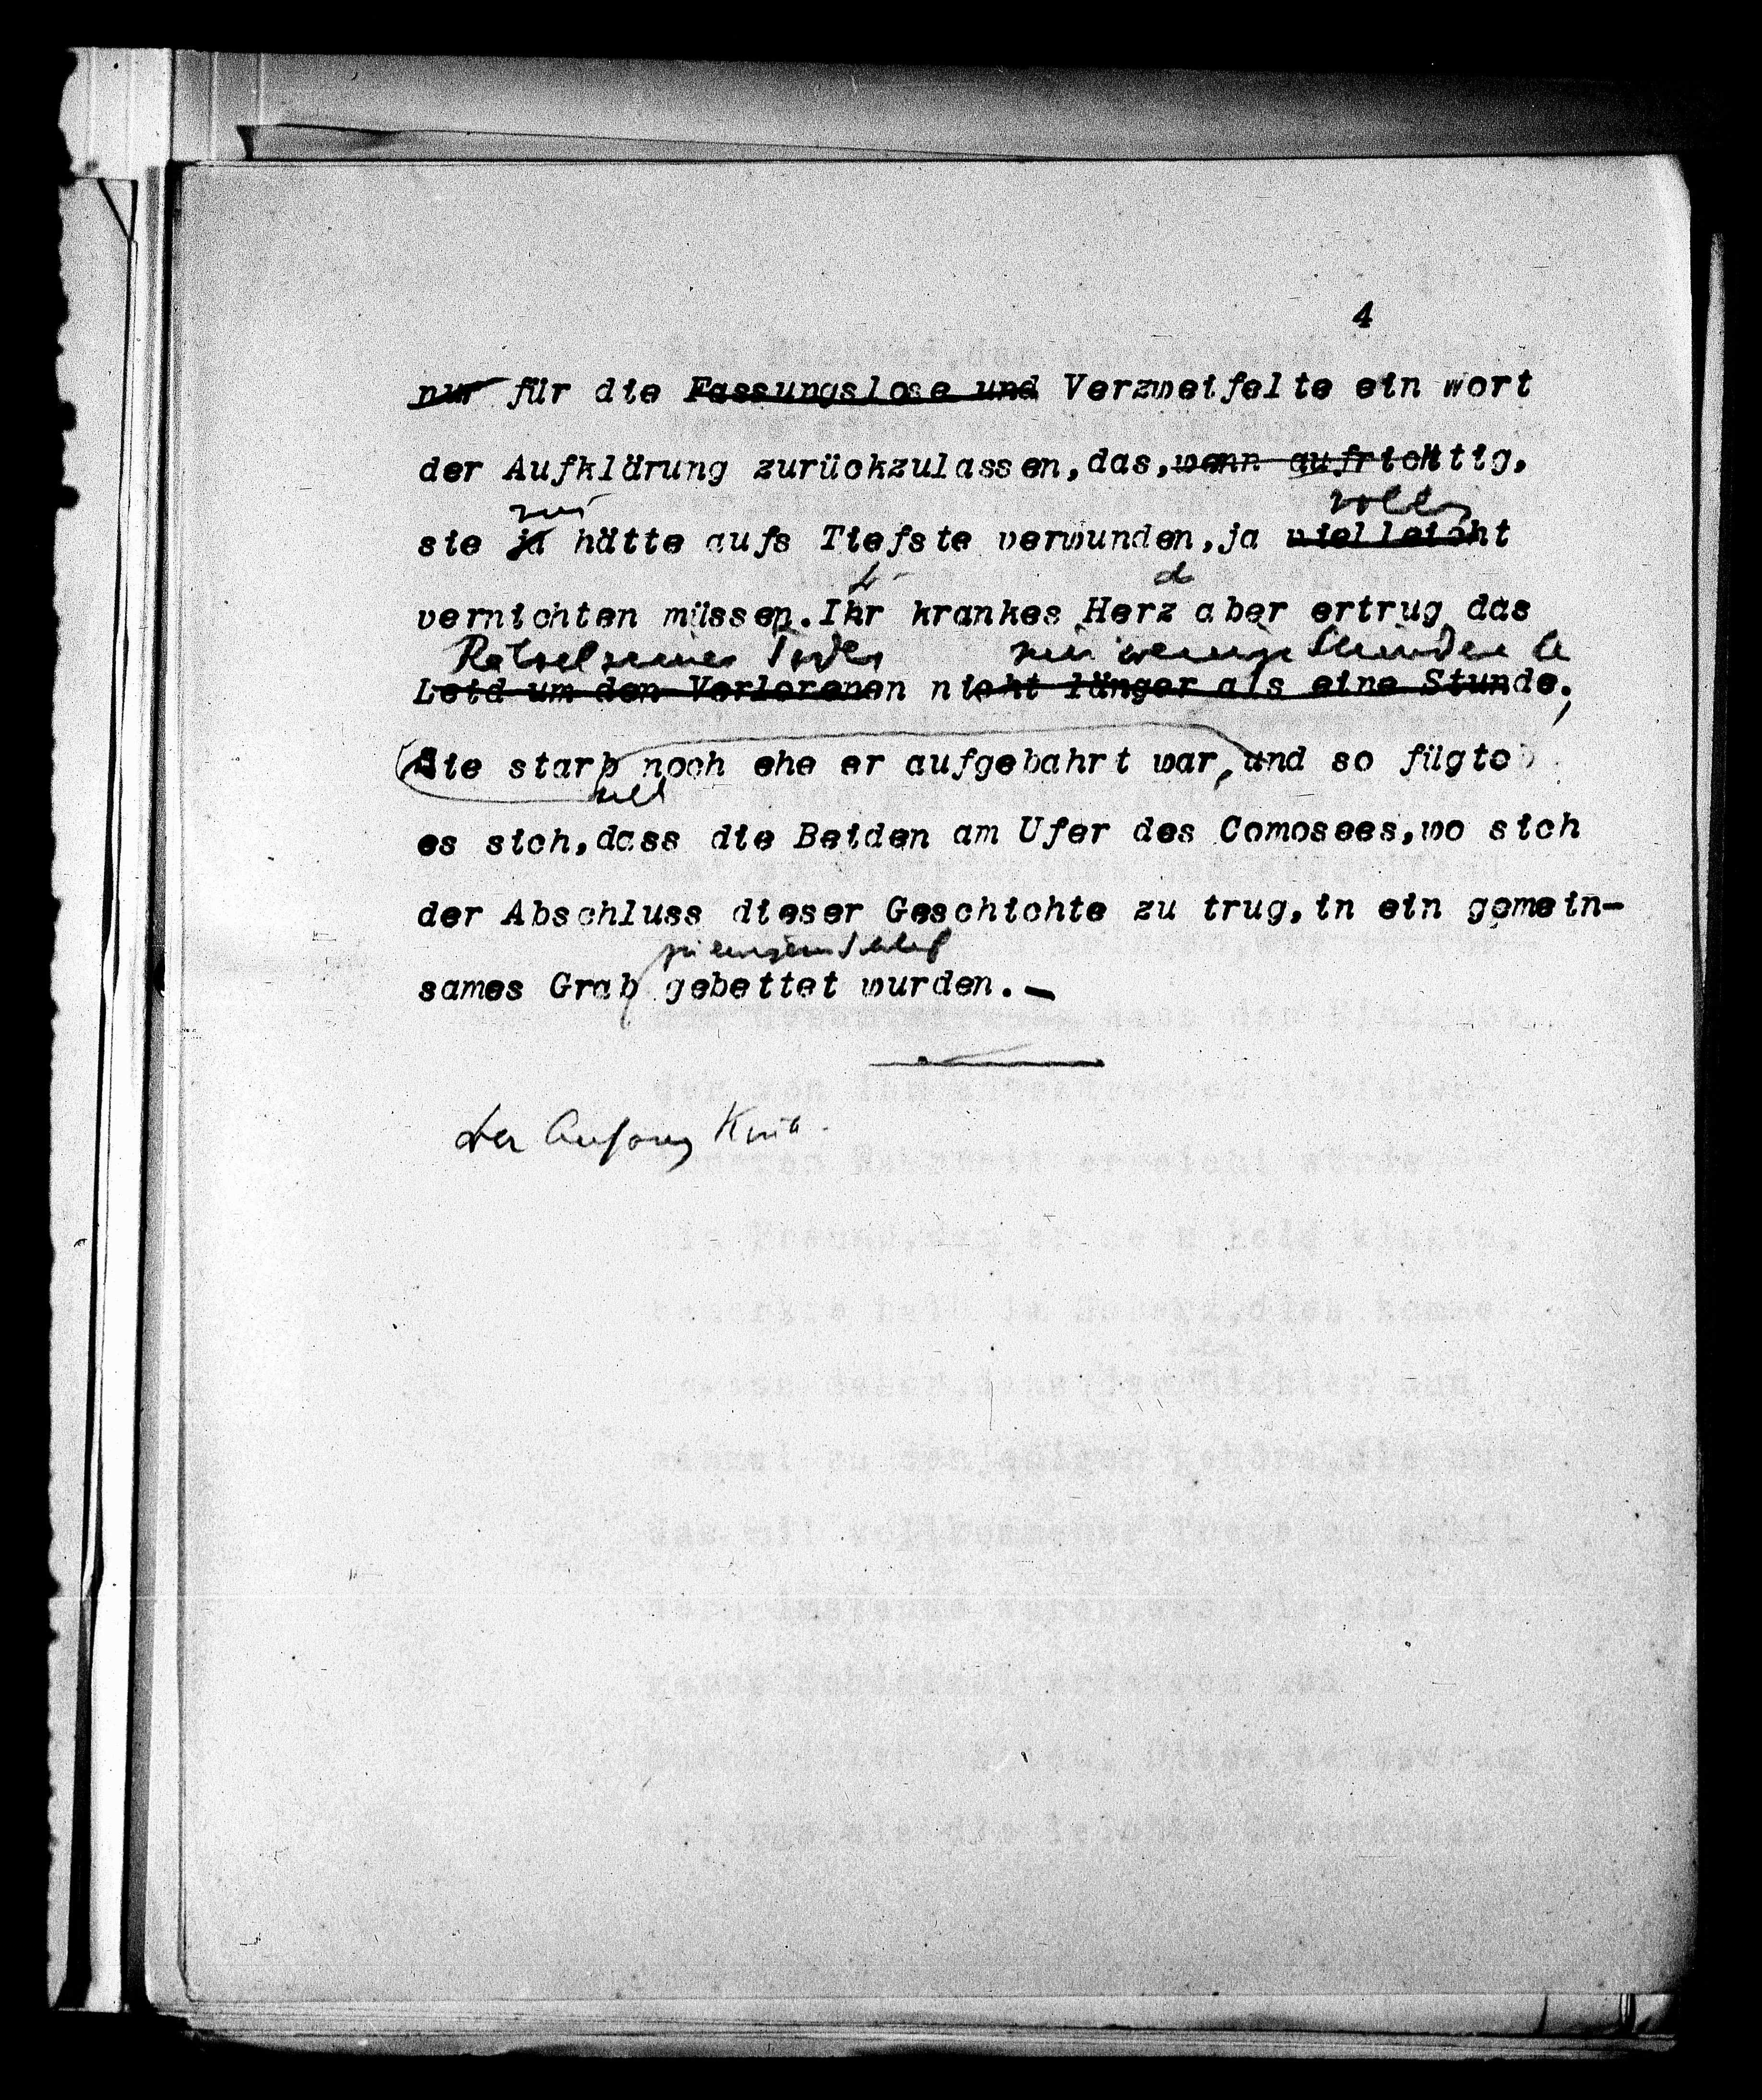 4
nur für die Fassungslose und Verzweifelte ein Wort
der Aufklärung zurückzulassen, das, wenn aufrichtig,
nur vollends
sie ja hätte aufs Tiefste verwunden, ja vielleicht
d
vernichten müssen. Ihr krankes Herz aber ertrug das
Rätsel seines Todes nur wenige Stunden
Leid um den Verlorenen nicht länger als eine Stunde;
Sie starb noch ehe er aufgebahrt war, und so fügte
es sich, dass die Beiden am Ufer des Comosees, wo sich
der Abschluss dieser Geschichte zu trug, in ein gemein-
sames Grab gebettet wurden.—
der Anfang